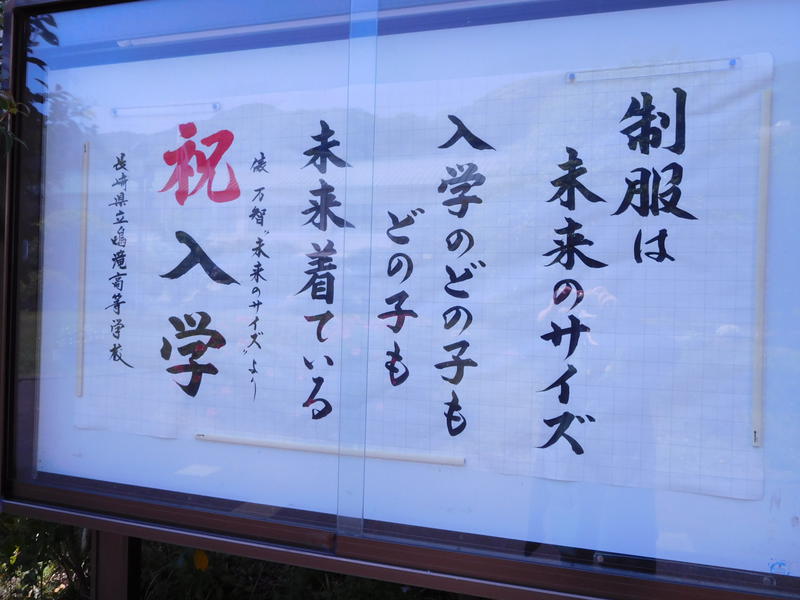 制服は
未来のサイズ
入学のどの子も
どの子も
未来着ている
俵 万智“未来のサイズ”より
祝入学
長崎県立鳴滝高等学校